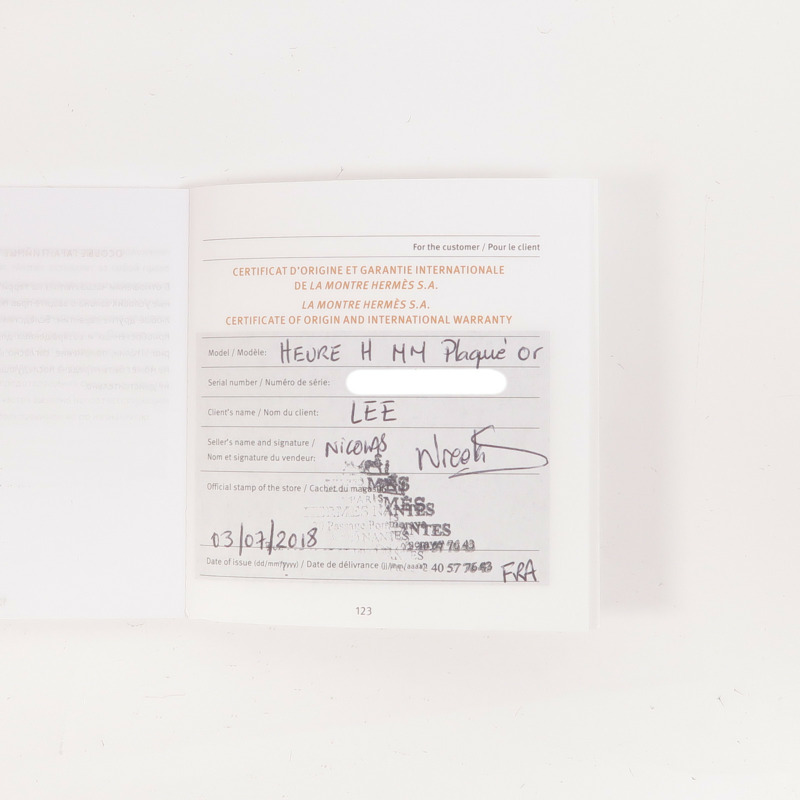 For the customer / Pour le client
CERTIFICAT D'ORIGINE ET GARANTIE INTERNATIONALE
DE LA MONTRE HERMÈS S.A.
LA MONTRE HERMÈS S.A.
CERTIFICATE OF ORIGIN AND INTERNATIONAL WARRANTY
Model / Modèle: HEURE H MM Plaqué or
Serial number / Numéro de série:
Client's name / Nom du client: LEE
Seller's name and signature /
Nom et signature du vendeur: NICOLAS
Official stamp of the store / Cachet du magasin
HERMES NANTES
NANTES
03/07/2018
Date of issue (dd/mm/yyyy) / Date de délivrance (jj/mm/aaaa) 40 57 76 43 FRA
123